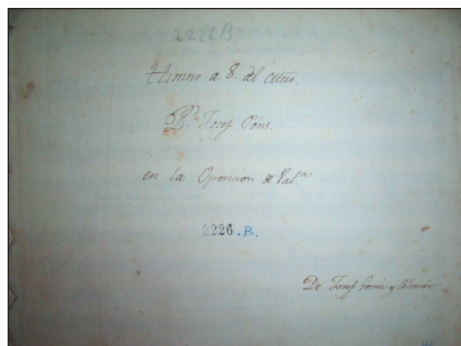 2226B
Himno a 8. del
Dn. Josef Pons.
en la Oposicion de Vala.
2226.B.
De Josef y